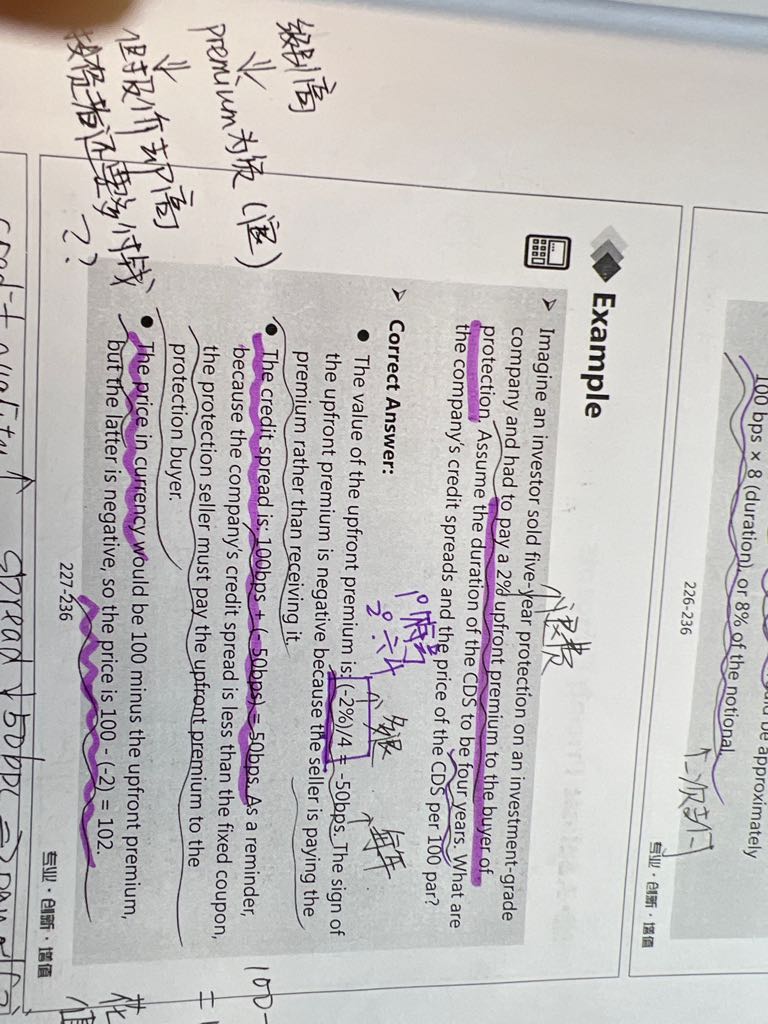 100 bps × 8 (duration), or 8% of the notional.
be approximately
226-236
专业·创新·增值
Example
➢ Imagine an investor sold five-year protection on an investment-grade
company and had to pay a 2% upfront premium to the buyer of
protection. Assume the duration of the CDS to be four years. What are
the company's credit spreads and the price of the CDS per 100 par?
➢ Correct Answer:
● The value of the upfront premium is: (-2%)/4 = -50bps. The sign of
the upfront premium is negative because the seller is paying the
premium rather than receiving it.
● The credit spread is: 100bps + (-50bps) = 50bps. As a reminder,
because the company's credit spread is less than the fixed coupon,
the protection seller must pay the upfront premium to the
protection buyer.
● The price in currency would be 100 minus the upfront premium,
but the latter is negative, so the price is 100 - (-2) = 102.
227-236
专业·创新·增值
级别高
⇓
premium为负(退)
⇓
但报价却高
投资者还要多付钱
??
个退费
↑每年
1°
2° ÷4
credit quality ↑ spread ↓ 50bps ⇒
100-